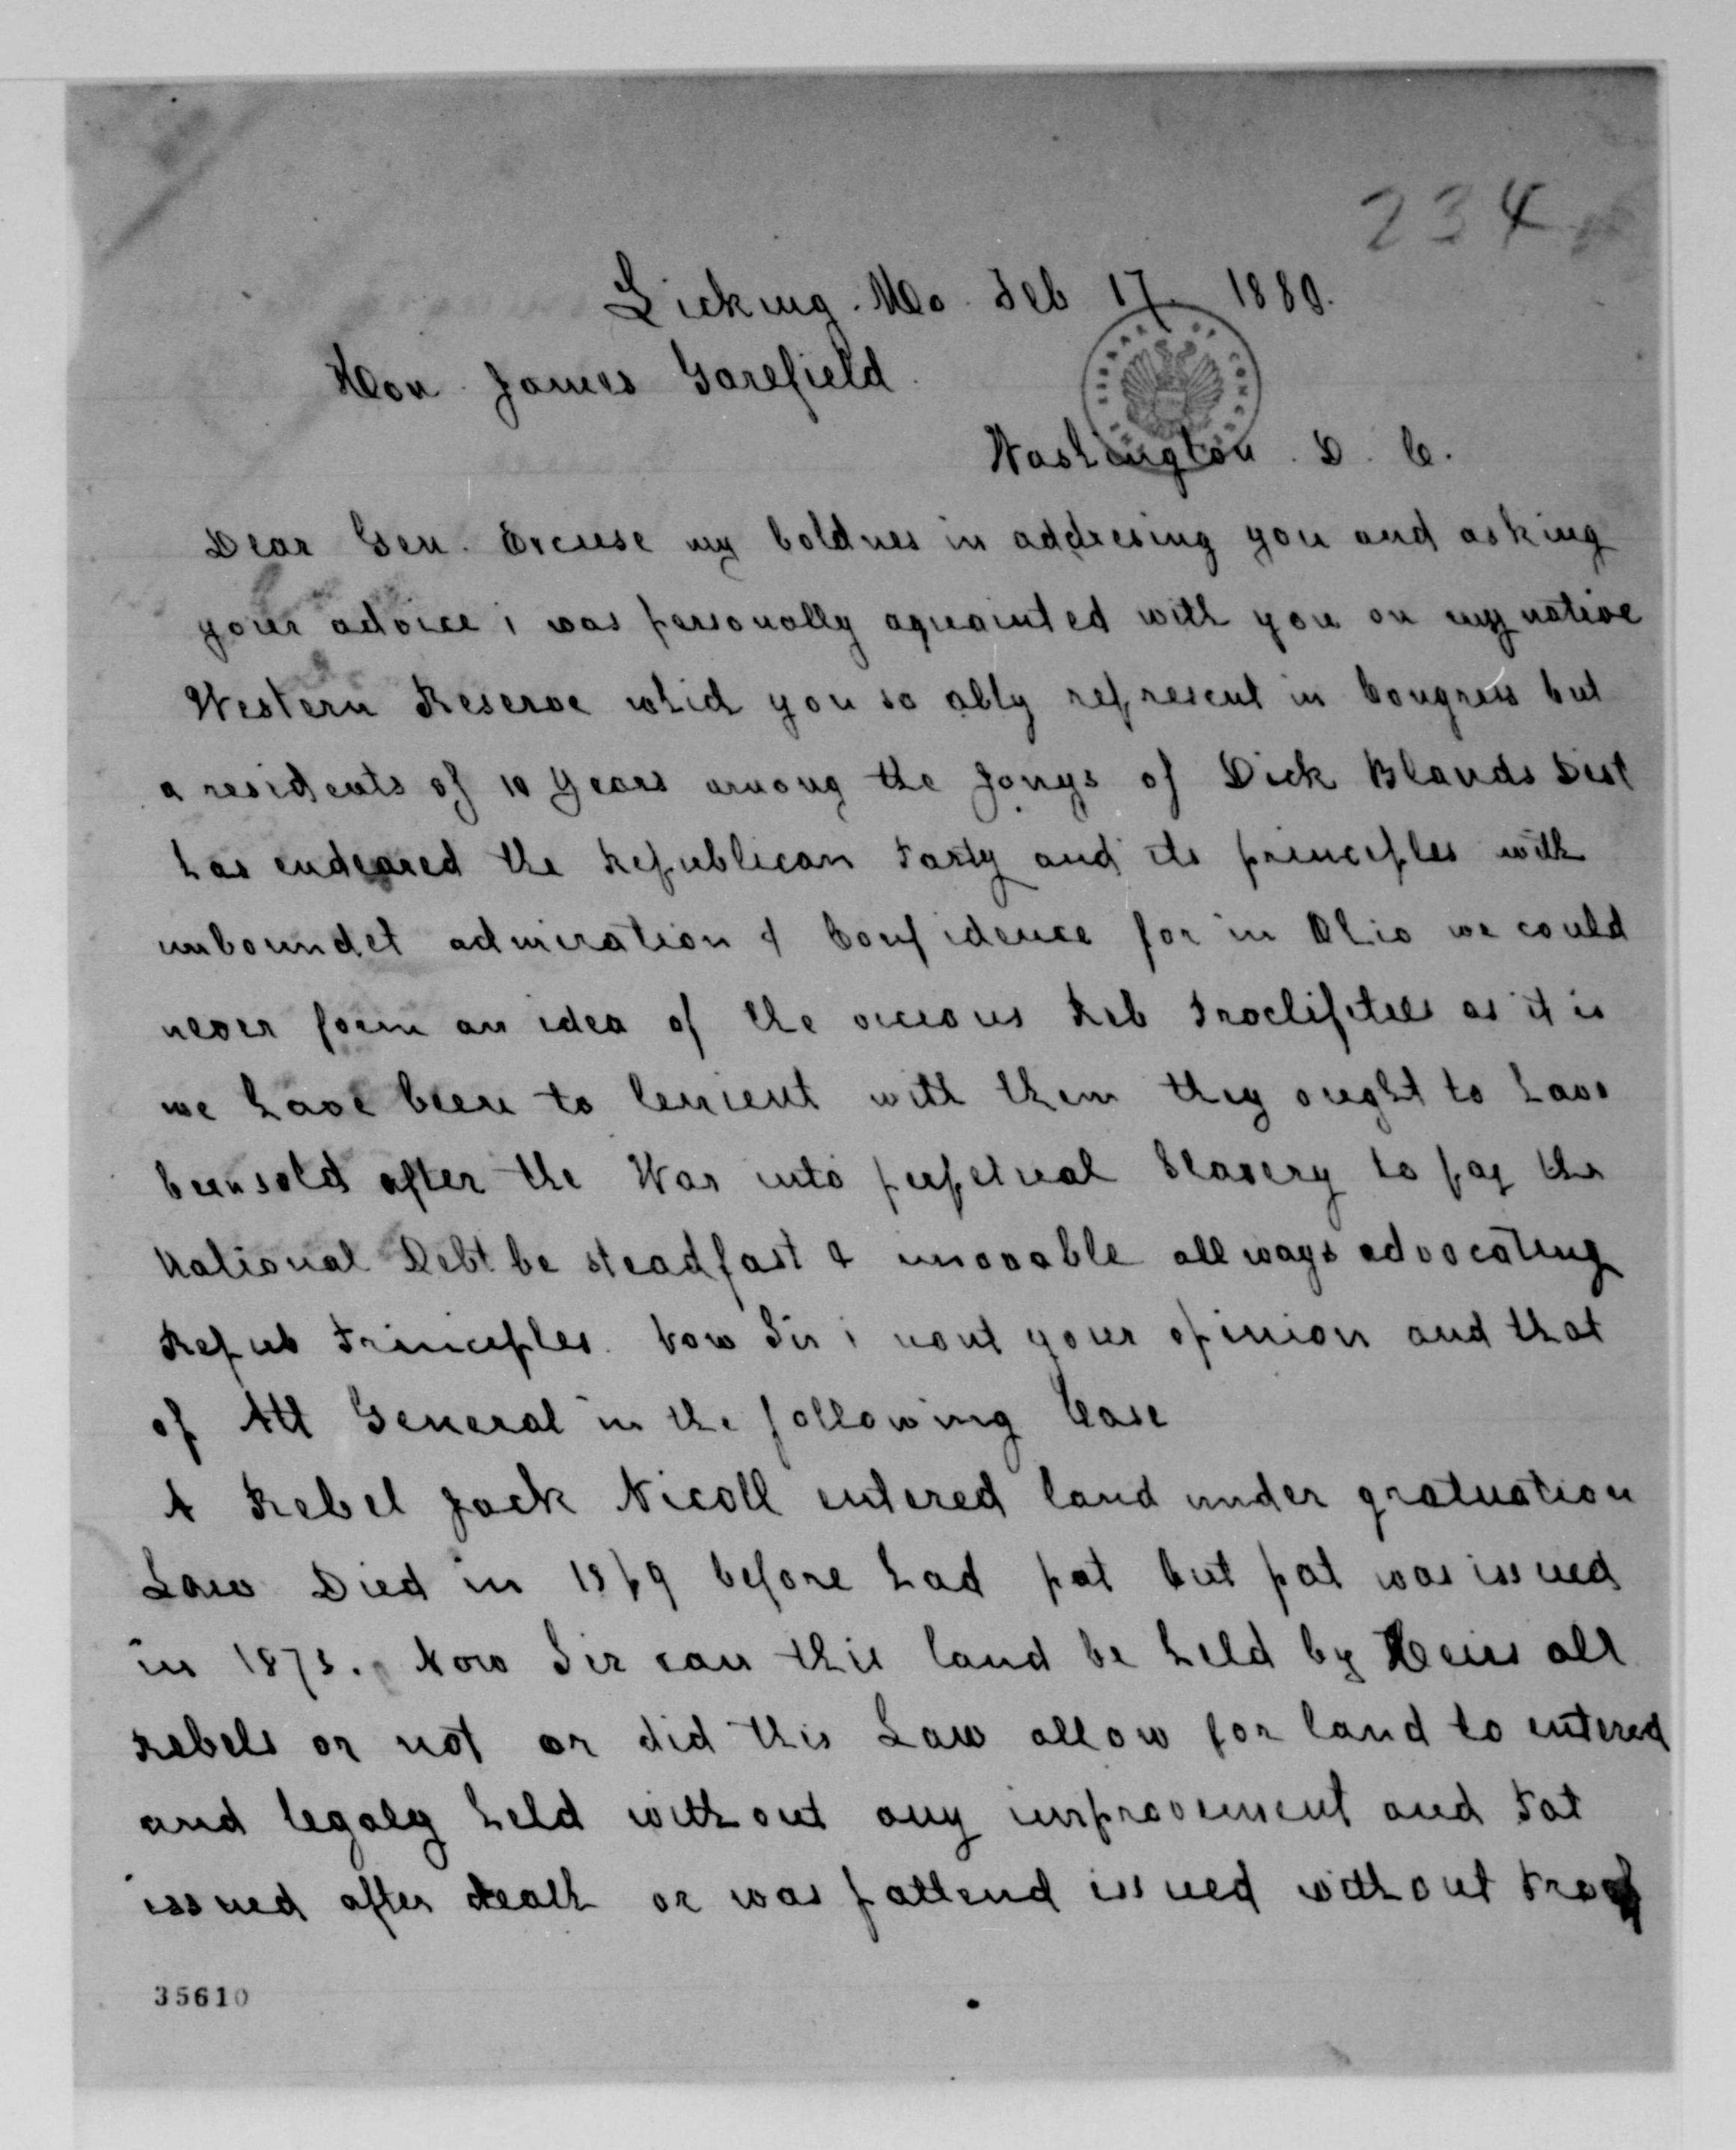 234
Licking. Mo. Feb 17. 1880.
Hon. James Garefield.
LIBRARY OF CONGRESS
Washington. D. C.
Dear Gen. Excuse my boldnes in addresing you and asking
your advice i was personally aquainted with you on my native
Western Reserve which you so ably represent in Congress but
a residents of 10 years among the Jonys of Dick Blands Dist
has endeared the Republican Party and its principles with
unboundet admiration & Confidence for in Ohio we could
never form an idea of the vicious Reb as it is
we have been to lenient with them they ought to have
been sold after the War into perpetual Slavery to pay the
National Debt be steadfast & unovable allways advocating
Repub Principles. Now Sir i wont your opinion and that
of Att General in the following Case
A Rebel Jack Nicoll entered land under gratuation
Law Died in 1869 before had pat but pat was issued
in 1873. Now Sir can this land be held by Heirs all
Rebels or not or did this Law allow for land to entered
and legaly held without any improvement and Pat
issued after death or was pattend issued without Proof
35610